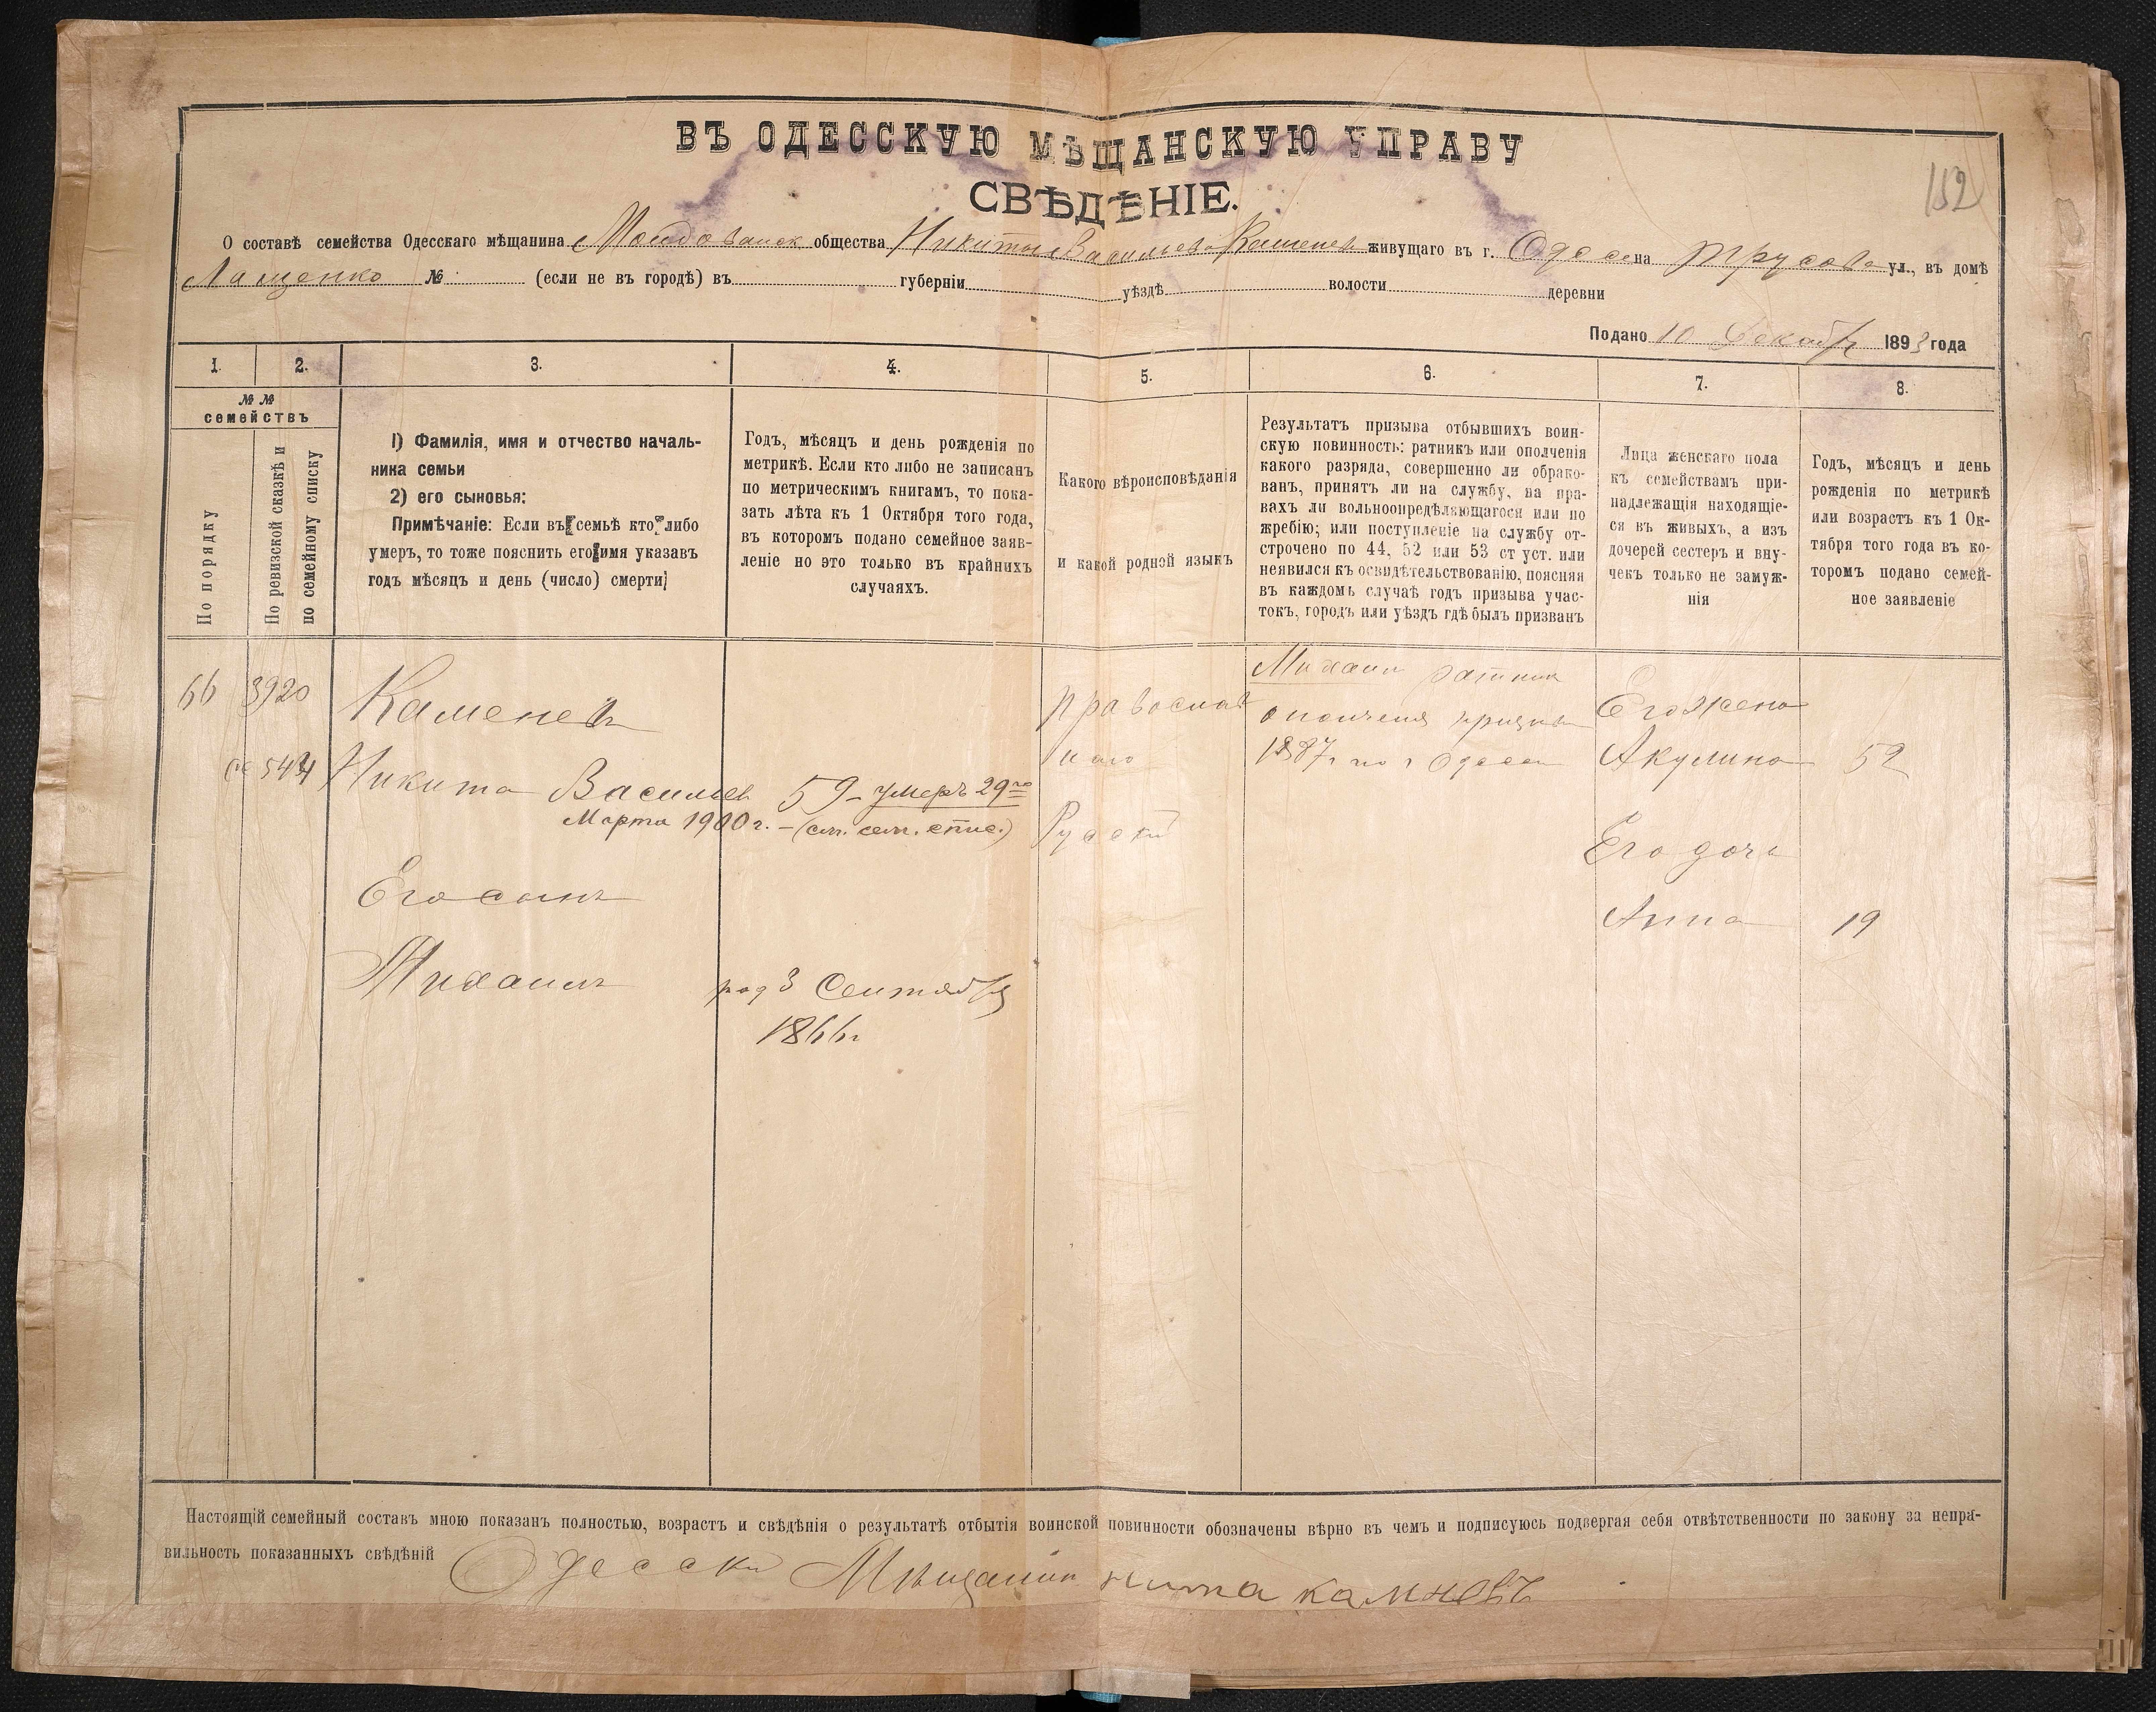 ВЪ ОДЕССКУЮ МѢЩАНСКУЮ УПРАВУ
СВѢДѢНІЕ.
152
О составѣ семейства Одесскаго мѣщанина Молдованск общества Никиты Васильева Каменев живущаго въ г. Одесс на ул., въ домѣ
Лащенко № (если не въ городѣ) въ губерніи уѣздѣ волости деревни
Подано 10 Декабр 1893 года
1. 2. 3. 4. 5. 6. 7. 8.
№ №
семействъ
По порядку
По ревизской сказкѣ и
по семейному списку
1) Фамилія, имя и отчество началь-
ника семьи
2) его сыновья:
Примѣчаніе: Если въ семьѣ кто либо
умеръ, то тоже пояснить его имя указавъ
годъ мѣсяцъ и день (число) смерти
Годъ, мѣсяцъ и день рожденія по
метрикѣ. Если кто либо не записанъ
по метрическимъ книгамъ, то пока-
зать лѣта къ 1 Октября того года,
въ которомъ подано семейное заяв-
леніе но это только въ крайнихъ
случаяхъ.
Какого вѣроисповѣданія
и какой родной языкъ
Результатъ призыва отбывшихъ воин-
скую повинность: ратникъ или ополченія
какого разряда, совершенно ли обрако-
ванъ, принятъ ли на службу, на пра-
вахъ ли вольноопредѣляющагося или по
жребію; или поступленіе на службу от-
строчено по 44, 52 или 53 ст уст. или
неявился къ освидѣтельствованію, поясняя
въ каждомъ случаѣ годъ призыва учас-
токъ, городъ или уѣздъ гдѣ былъ призванъ
Лица женскаго пола
къ семействамъ при-
надлежащія находящіе-
ся въ живыхъ, а изъ
дочерей сестеръ и вну-
чекъ только не замуж-
нія
Годъ, мѣсяцъ и день
рожденія по метрикѣ
или возрастъ къ 1 Ок-
тября того года въ ко-
торомъ подано семей-
ное заявленіе
66 3920
544
Каменев
Никита Васильев 59 - умеръ 29го
Марта 1900 г. - (см. сем. спис.)
Его сынъ
Михаилъ род 3 Сентября
1866г
православ
наго
Русскій
Михаил ратник
ополченія призыва
1887г по г Одессе
Его жена
Акулина 52
Его дочь
Анна 19
Настоящій семейный составъ мною показанъ полностью, возрастъ и свѣдѣнія о результатѣ отбытія воинской повинности обозначены вѣрно въ чемъ и подписуюсь подвергая себя отвѣтственности по закону за непра-
вильность показанныхъ свѣдѣній Одесски Мѣщанин камневъ